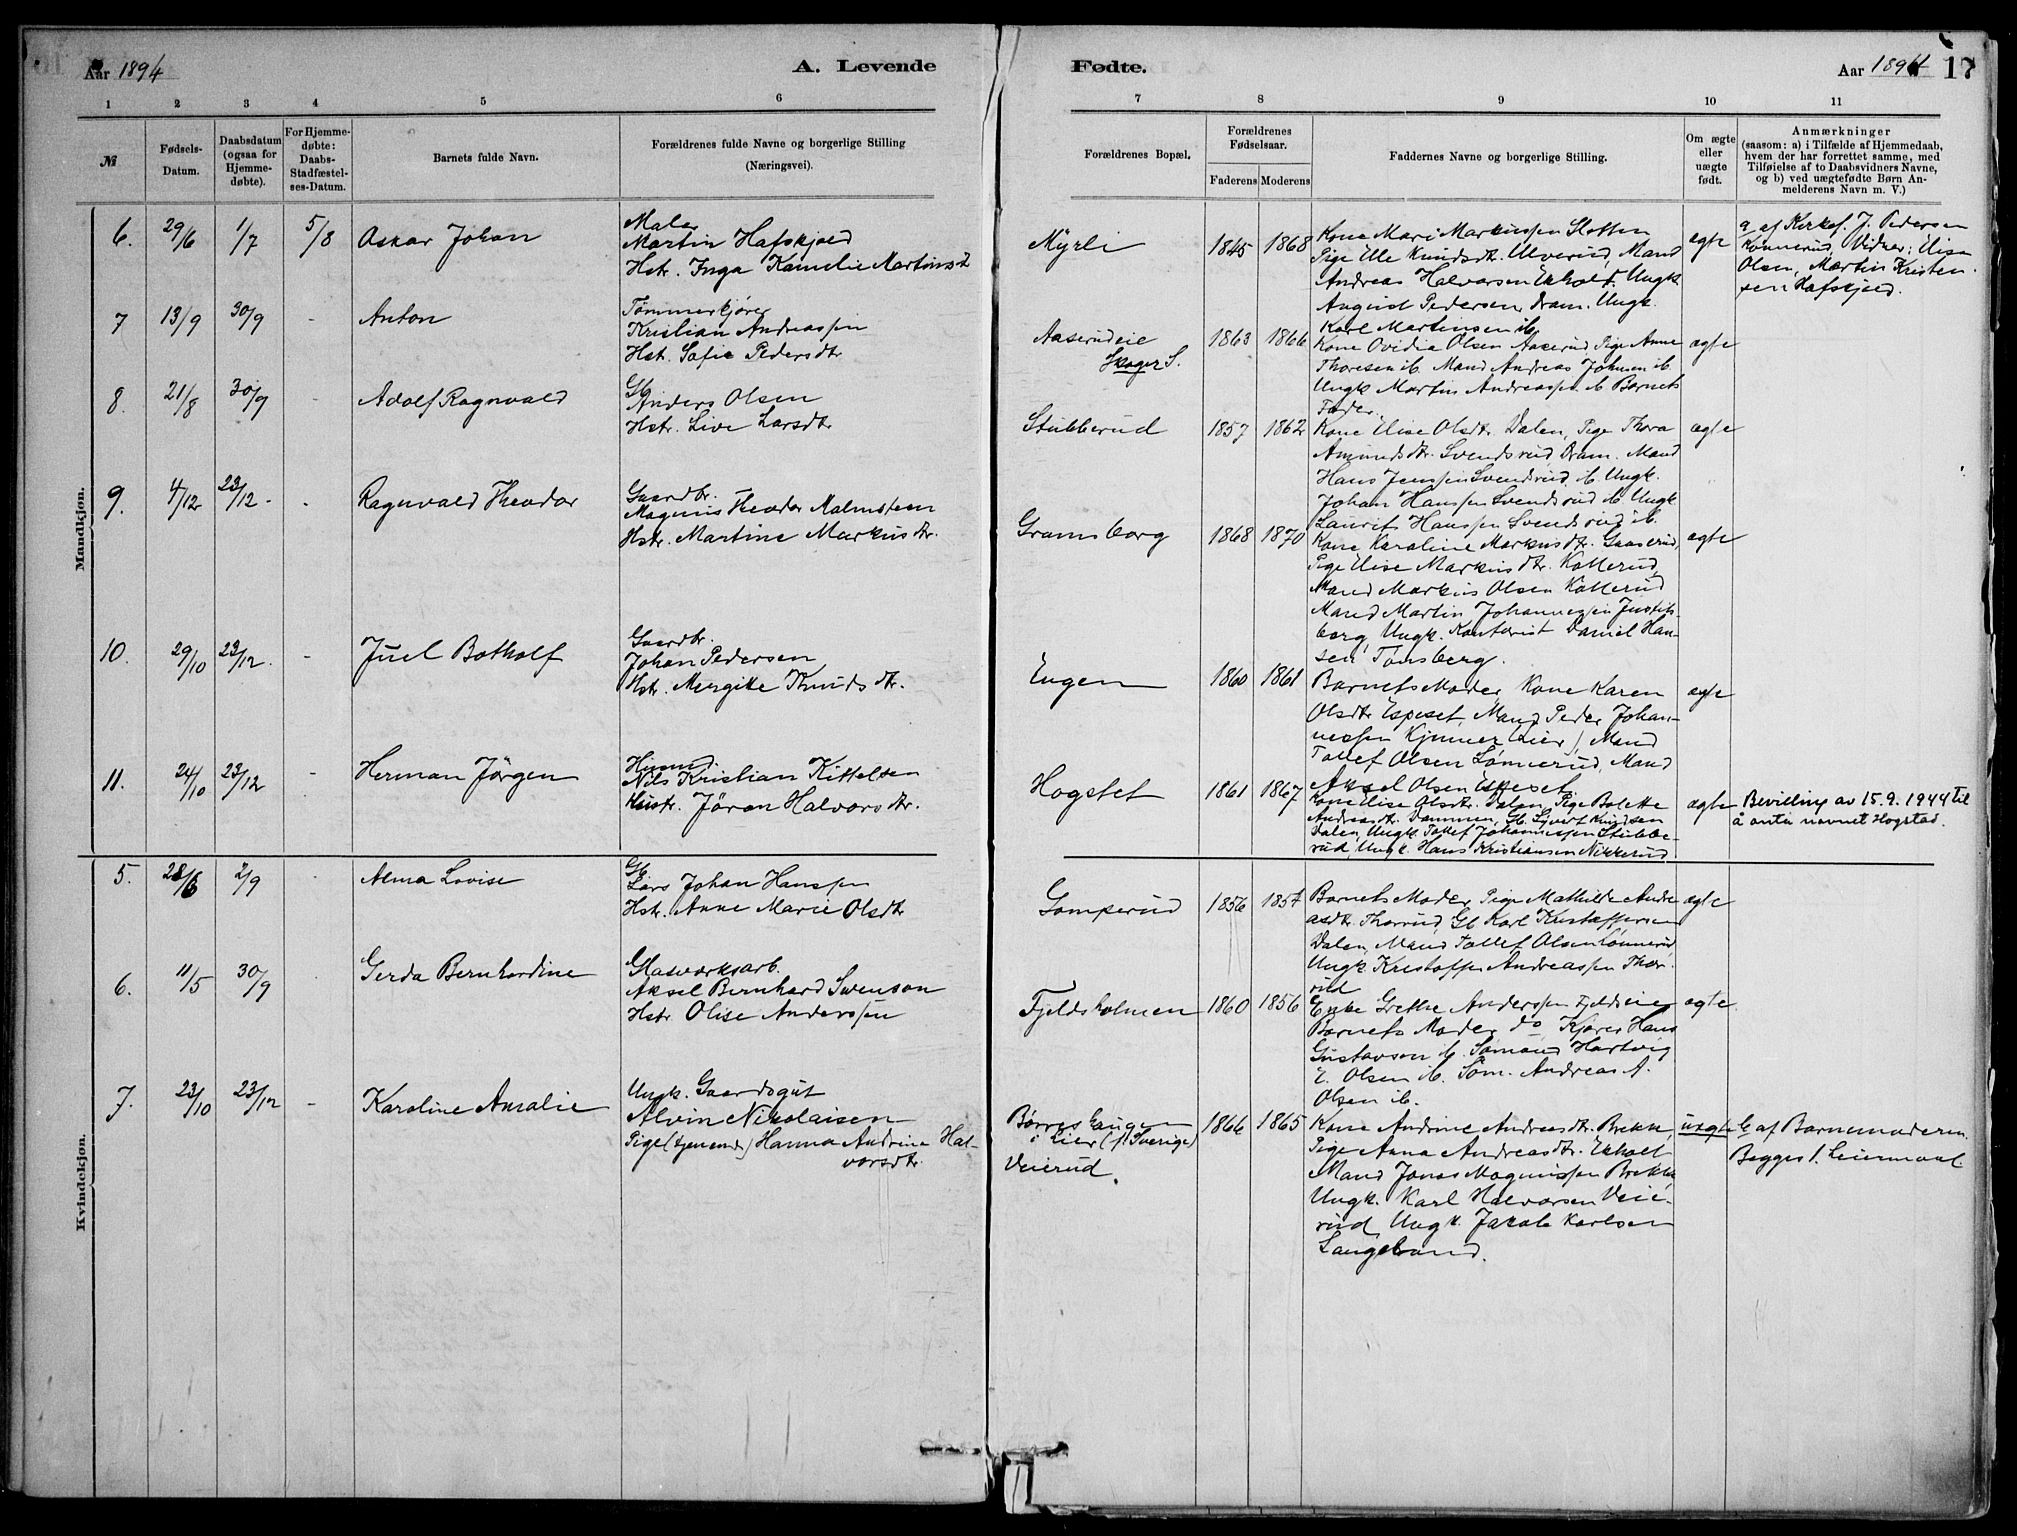 Aar 1894
A. Levende
Fødte.
Aar 1894
17
1 2 3 4 5 6 7 8 9 10 11
№
Fødsels-Datum.
Daabsdatum (ogsaa for Hjemme-døbte).
For Hjemme-døbte: Daabs-Stadfæstel-ses-Datum.
Barnets fulde Navn.
Forældrenes fulde Navne og borgerlige Stilling (Næringsvei).
Forældrenes Bopæl.
Forældrenes Fødselsaar.
Faderens Moderens
Faddernes Navne og borgerlige Stilling.
Om ægte eller uægte født.
Anmærkninger
(saasom: a) i Tilfælde af Hjemmedaab,
hvem der har forrettet samme, med
Tilføielse af to Daabsvidners Navne,
og b) ved uægtefødte Børn An-
melderens Navn m. V.)
Mandkjøn.
6. 29/6 1/7 5/8 Oskar Johan
Maler
Martin Hafskjold
Hstr. Inga Kamelie Martinsd
Myrli 1845 1868
Kone Mari Markussen Sletten
Pige Elle Knudsdtr. Ulverud, Mand
Andreas Halvorsen Ekholt. Ungk.
August Pedersen, Dram. Ungk.
Karl Martinsen ib.
egte
a af Kirkes. J. Pedersen
Konnerud Vidner: Elise
Olsen, Martin Kristen-
sen Hafskjold.
7 13/9 30/9 - Anton
Tømmerkjører
Kristian Andreassen
Hst. Sofie Pedersdtr
Aaserudeie
Skoger S.
1863 1866
Kone Ovidia Olsen Aaserud Pige Anne
Thoresen ib. Mand Andreas Johnsen ib.
Ungk Martin Andreassen ib Barnets
Fader.
ægte
8. 21/8 30/9 - Adolf Ragnvald
Gb
Anders Olsen
Hstr. Live Larsdtr
Stubberud 1857 1862
Kone Elise Olsdtr. Dalen, Pige Thora
Amundsdtr. Svendsrud Dram. Mand
Hans Jenssen Svendsrud ib. Ungk.
Johan Hanssen Svendsrud ib Ungk
Laurits Hanssen Svendsrud ib.
ægte
9. 4/12 23/12 - Ragnvald Theodor
Gaardbr.
Magnus Theodor Malmsteen
Hstr. Martine Markusdtr.
Gramsborg 1868 1870
Kone Karoline Markusdtr. Gaaserud
Pige Elise Markusdtr. Kollerud,
Mand Markus Olsen Kollerud
Mand Martin Johannessen Justits-
borg, Ungk. Kontorist Daniel Han-
sen Tønsberg.
ægte
10. 29/10 23/12. - Juel Botholf
Gaardbr.
Johan Pedersen
Hstr. Mergitte Knudsdtr.
Engen 1860 1861
Barnets Moder, Kone Karen
Olsdtr Espeset, Mand Peder Johan-
nessen Kjenner Lier), Mand
Tollef Olsen Lønnerud, Mand
Aksel Olsen Espeset.
ægte
11. 24/10 23/12 - Herman Jørgen
Husmd.
Nils Kristian Kittelsen
Hustr. Jøran Halvorsdtr.
Hogstet 1861 1867
Kone Elise Olsdtr. Dalen, Pige Bolette
Andreasdtr. Dammen, Gb. Sjvert Knudsen
Dalen, Ungk. Tollef Johannessen Stubbe-
rud, Ungk. Hans Kristiansen Nikkerud.
ægte
Bevilling av 15.9.1944 til
å anta navnet Hogstad.
Kvindekjøn.
5. 28/6 2/9 Alma Lovise
Gb
Lars Johan Hanssen
Hstr. Anne Marie Olsdtr
Gomperud 1856 1857
Barnets Moder, Pige Mathilde Andre
asdtr. Thorrud, Gb Karl Kristoffersen
Dalen, Mand Tollef Olsen Lønnerud
Ungk. Kristoffer Andreassen Thor-
rud
ægte
6. 11/5 30/9 Gerda Bernhardine
Glasværksarb.
Aksel Bernhard Svenson
Hstr Olise Anderssen
Fjeldsholmen 1860 1856
Enke Grethe Anderssen Fjeldseie
Barnets Moder do Kjører Hans
Gustavsen ib. Sømand Hartvig
E. Olsen ib. Søm. Andreas A.
Olsen ib.
ægte
7. 23/10 23/12 - Karoline Amalie
Ungk. Gaardsgut
Alvin Nikolaisen
Pige (tjenende) Hanna Andrine Hal-
vorsdtr.
Børreshaugen
i Lier (f. Sverige)
Veierud.
1866 1865
Kone Andrine Andreasdtr. Brekke,
Pige Anna Andreasdtr. Ekholt
Mand Jonas Magnussen Brekke,
Ungk. Karl Halvorsen Veie-
rud, Ungk. Jakob Karlsen
Langebrand.
uægte
b af Barnemoderen.
Begges 1. Leiermaal.